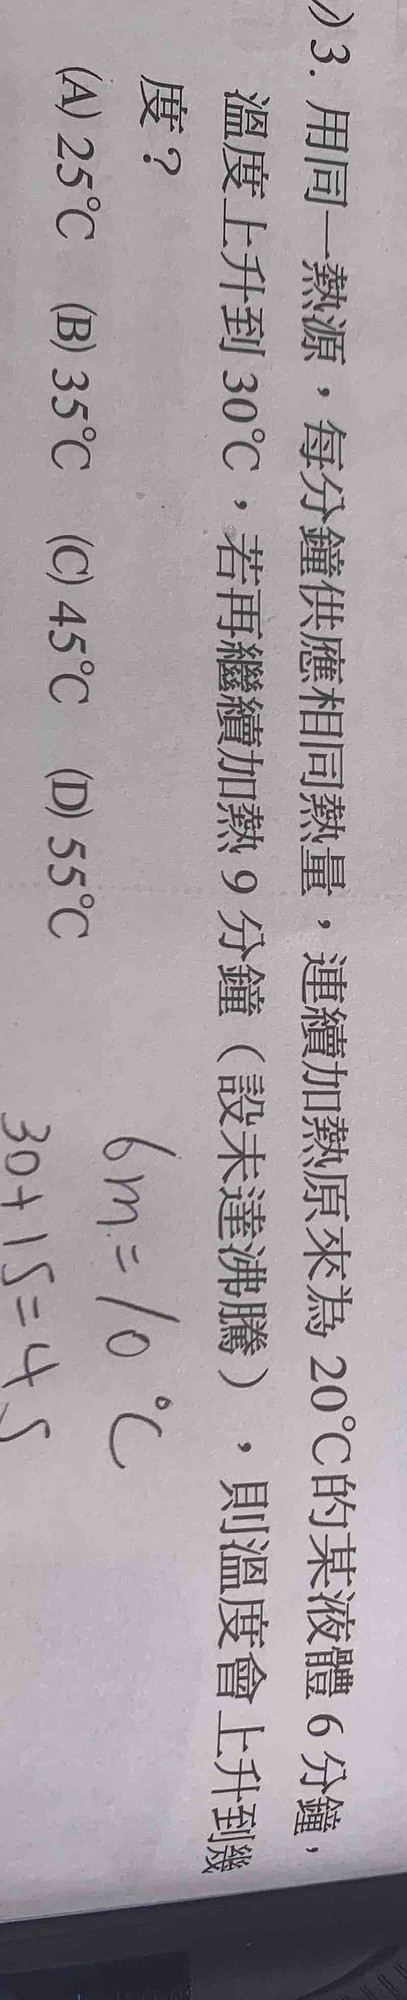 )3. 用同一熱源，每分鐘供應相同熱量，連續加熱原來為 20°C的某液體 6 分鐘，
溫度上升到 30°C，若再繼續加熱 9 分鐘（設未達沸騰），則溫度會上升到幾
度？
(A) 25°C (B) 35°C (C) 45°C (D) 55°C
6m = 10°C
30+15=45